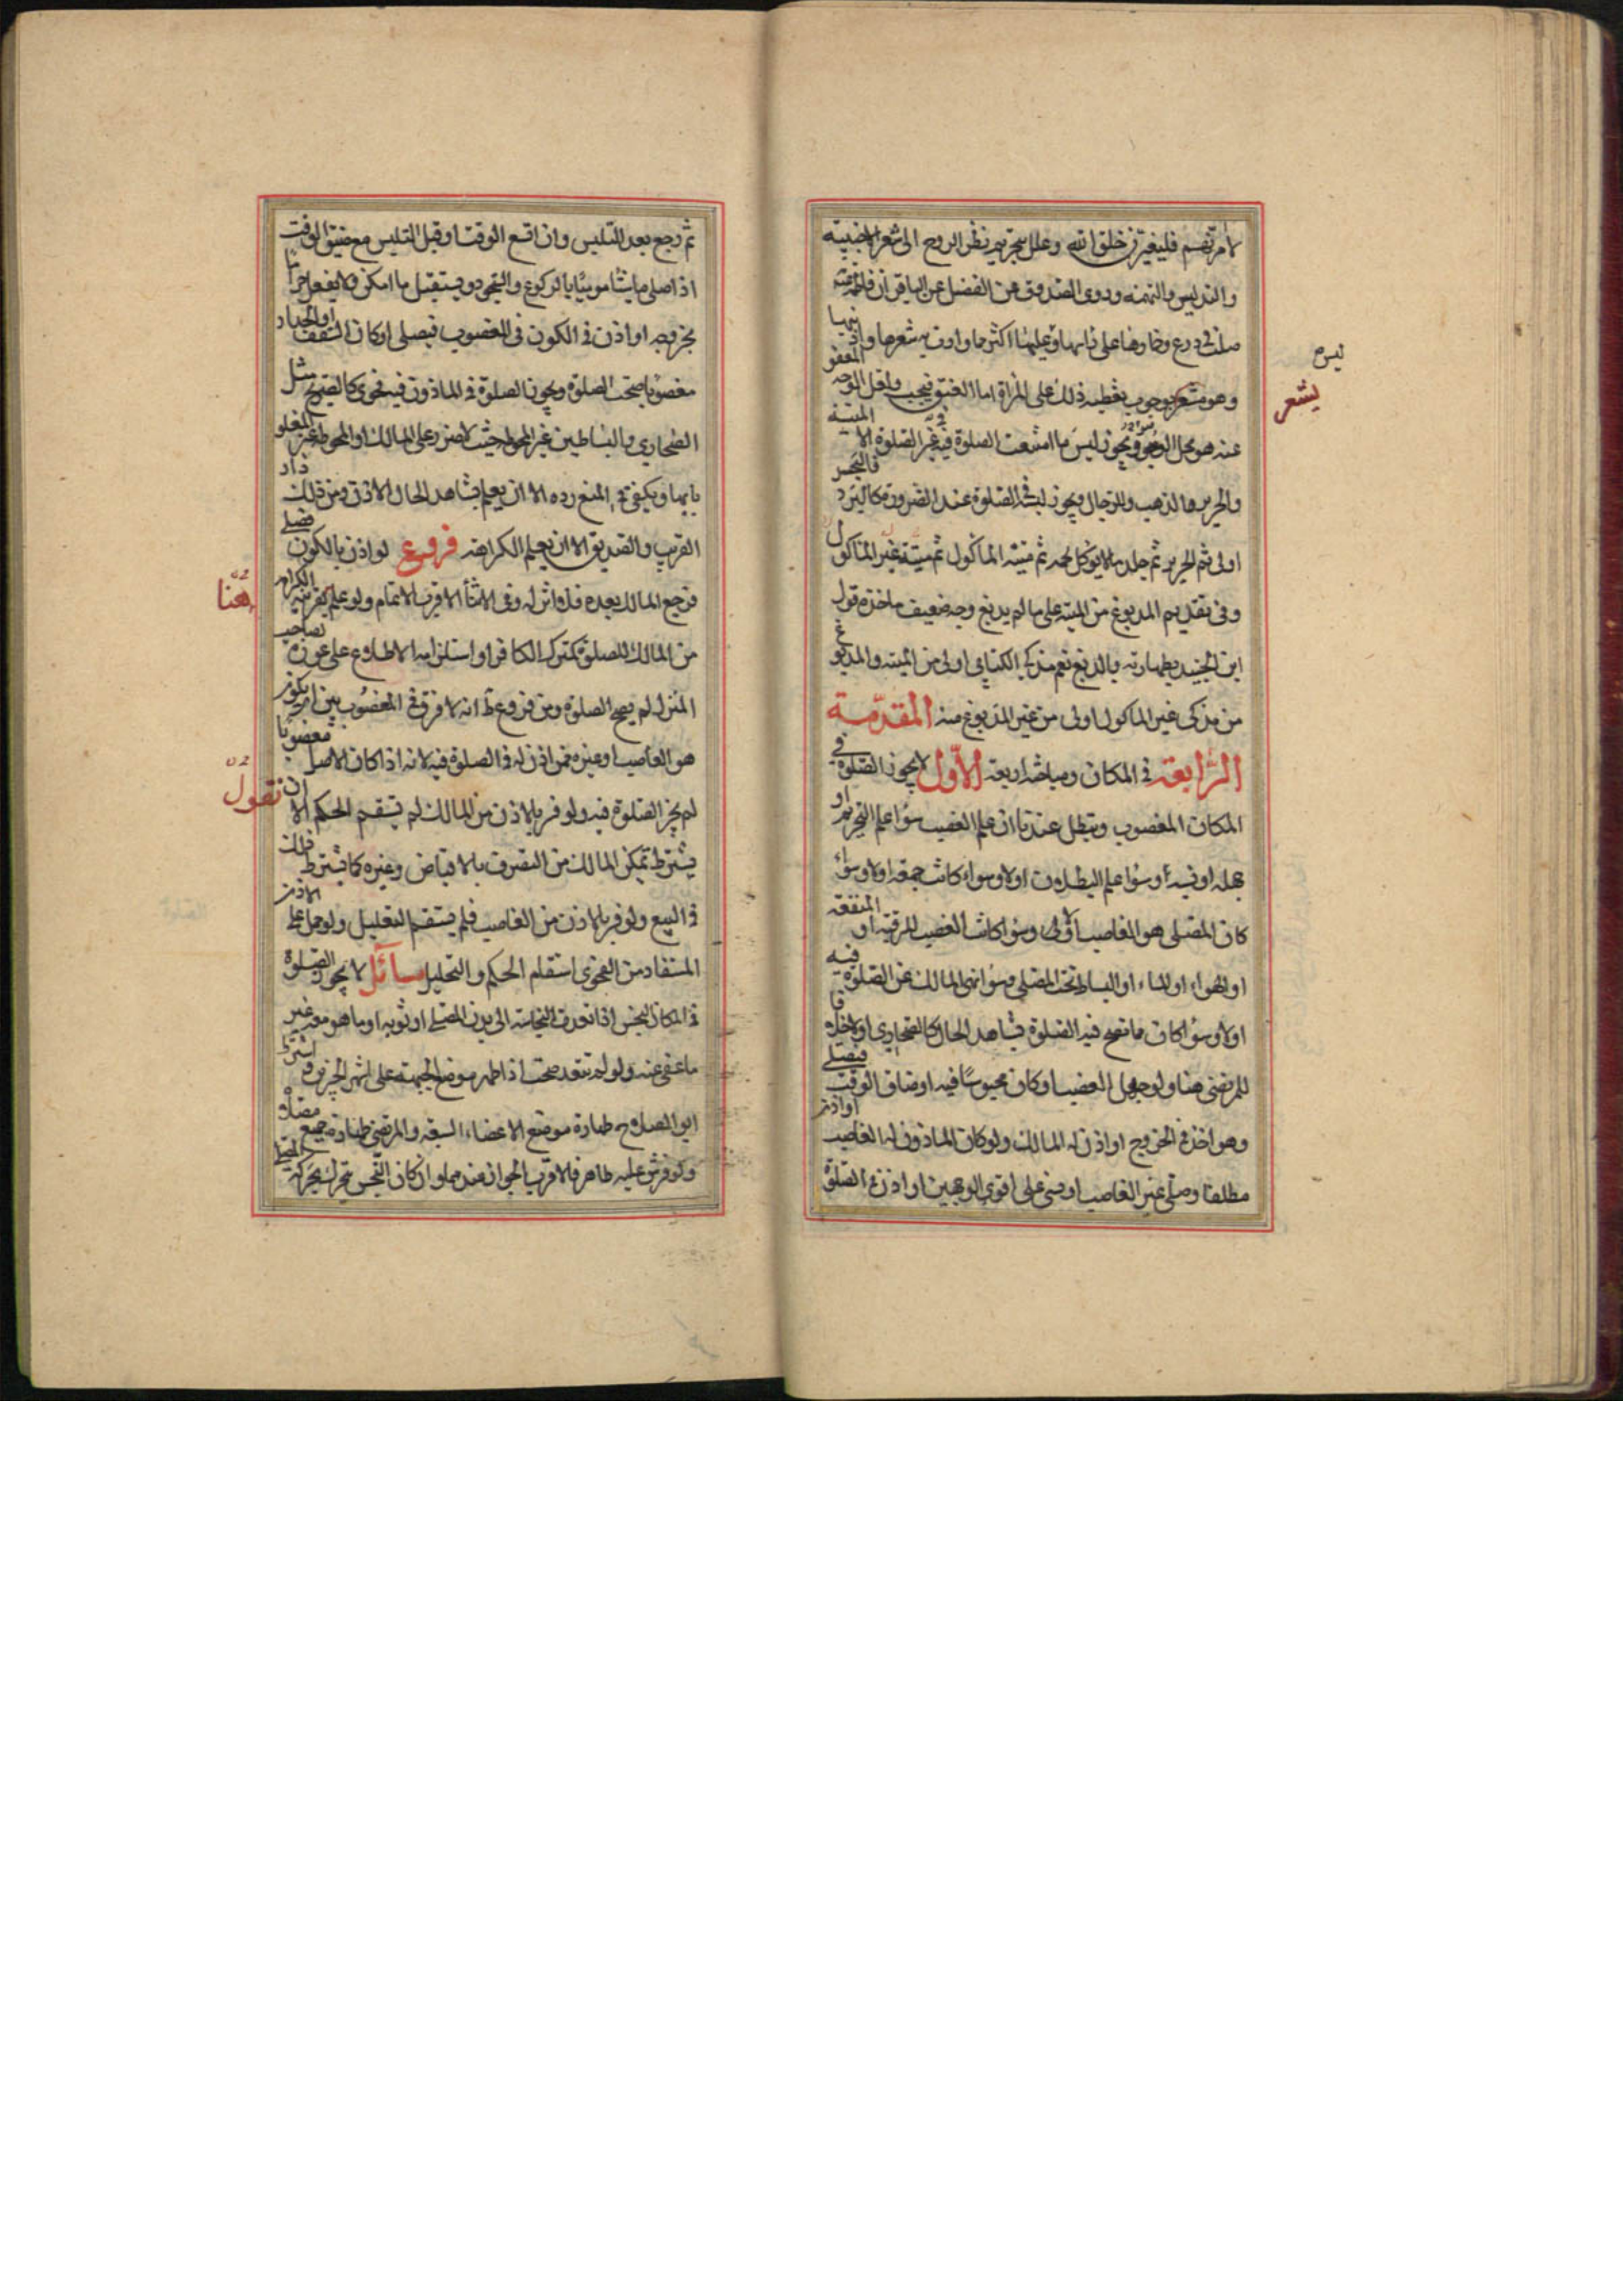 لامرتهم فليغيرن خلق الله وعلل بتحريم نظر الزوج الى شعر الاجنبية
والتدليس والتهمة وروى الصدوق عن الفضيل عن الباقر ان فاطمة
صلت في درع وخمارها على راسها وعليها اكثر ما وارت به شعرها واذنيها
وهو مشعر بوجوب تغطية ذلك على المراة اما العنق فيجب واقل الوجه المعفو
عنه هو محل الوضوء ويجوز لبس ما امتنعت الصلوة فيه في غير الصلوة الا الميتة
والحرير والذهب وللرجال ويجوز لبسه في الصلوة عند الضرورة كالبرد فالنجس
اولى ثم الحرير ثم جلد ما لا يؤكل لحمه ثم ميتة الماكول ثم ميتة غير الماكول
وفي تقديم المدبوغ من الميتة على ما لم يدبغ وجه ضعيف ماخذه قول
ابن الجنيد بطهارته بالدبغ نعم مذكى الكتابي اولى من الميتة والمدبوغ
من مذكى غير الماكول اولى من غير المدبوغ منه المقدمة
الرابعة في المكان ومباحثه اربعة الاول لا يجوز الصلوة في
المكان المغصوب وتبطل عندنا ان علم الغصب سواء علم التحريم او
جهله او نسيه وسواء علم البطلان اولا وسواء كانت جمعة اولا وسواء
كان المصلى هو الغاصب اولى وسواء كان الغصب للرقبة او المنفعة
او الهواء او البناء او البساط تحت المصلى وسواء نهى المالك عن الصلوة فيه
اولا وسواء كان مما تصح فيه الصلوة بشاهد الحال كالصحاري اولا خلافا
للمرتضى هنا ولو جهل الغصب او كان محبوسا فيه او ضاق الوقت فيصلى
وهو اخذ في الخروج او اذن له المالك ولو كان الماذون له الغاصب او اذن
مطلقا وصلى غير الغاصب او نسى على اقوى الوجهين او اذن في الصلوة
ليس
يشعر
ثم رجع بعد التلبس وان اتسع الوقت او قبل التلبس مع ضيق الوقت
اذا صلى ماشيا موميا بالركوع والسجود ويستقبل ما امكن ولا يفعل حراما
بخروجه او اذن في الكون في المغصوب فيصلى او كان السقف او الجدار
مغصوبا صحت الصلوة ويجوز الصلوة في الماذون فيه فحوى كالصريح مثل
الصحاري والبساتين غير المحوط حيث لا ضرر على المالك او المحوط غير المغلوق
بابها ويكفي في المنع رده الا ان يعلم بشاهد الحال الاذن ومن ذلك دار
القريب والصديق الا ان يعلم الكراهة فروع لو اذن بالكون فصلى
فرجع المالك بعده فلا اثر له وفي الاثناء الاقرب الاتمام ولو علم بقرينة الكراهة
من المالك للصلوة كمترك الكافر او استلزامه الاطلاع على عورة صاحب
المنزل لم يصح الصلوة ومن فروع ط انه لا فرق في المغصوب بين ان يكون
هو الغاصب او غيره ممن اذن له في الصلوة فيه لانه اذا كان الاصل مغصوبا
لم يجز الصلوة فيه ولو فر بالاذن من المالك لم يستقم الحكم الا ان نقول
يشترط تمكن المالك من التصرف بالاقباض وغيره كما يشترط ذلك
في البيع ولو فر بالاذن من الغاصب فلم يستقم التعليل ولو حمل على الاذن
المستفاد من الفحوى استقام الحكم والتحليل مسائل لا يجوز الصلوة
في المكان النجس اذا تعدت النجاسة الى بدن المصلى او ثوبه او ما هو معه غير
ما عفى عنه ولو لم تتعد صحت اذا طهر موضع الجبهة على اشهر الخبرين واشترط
ابو الصلاح طهارة موضع الاعضاء السبعة والمرتضى طهارة جميع مصلاه
ولو فرش عليه طاهر فالاقرب الجواز عندهما وان كان النجس يتحرك بحركة المصلى
هنا
نقول